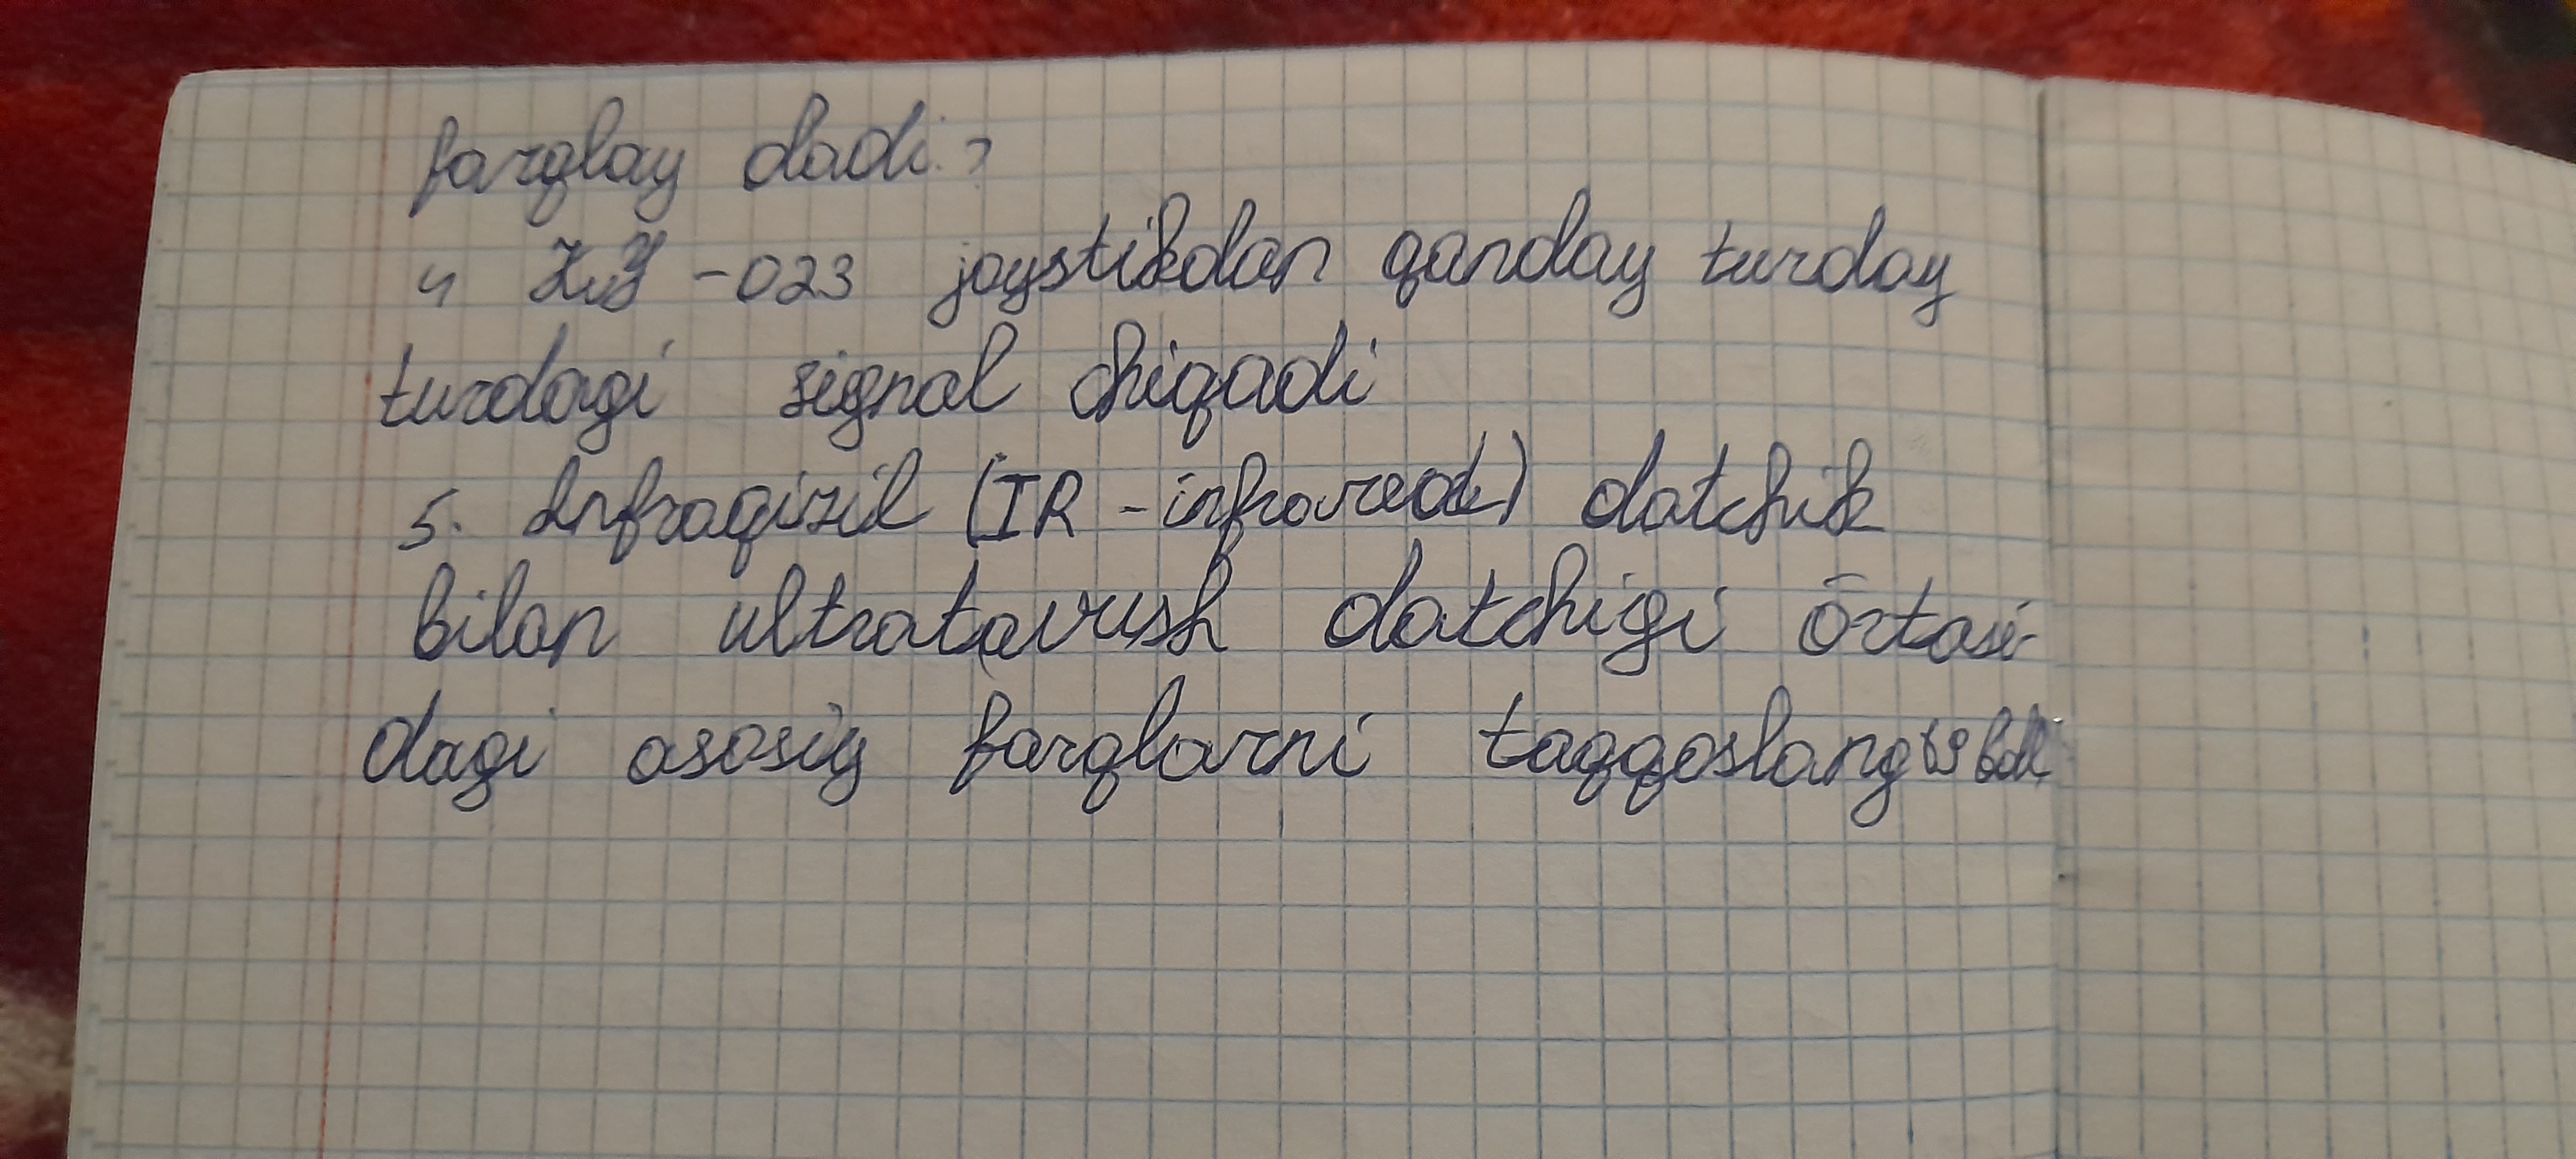 farqlay dadi?
4 Ky -023 joystikdan qanday turday
turdagi signal chiqadi
5. Infraqizil (IR-infrared) datchik
bilan ultratovush datchigi õrtasi-
dagi asosiy farqlarni taqqoslang